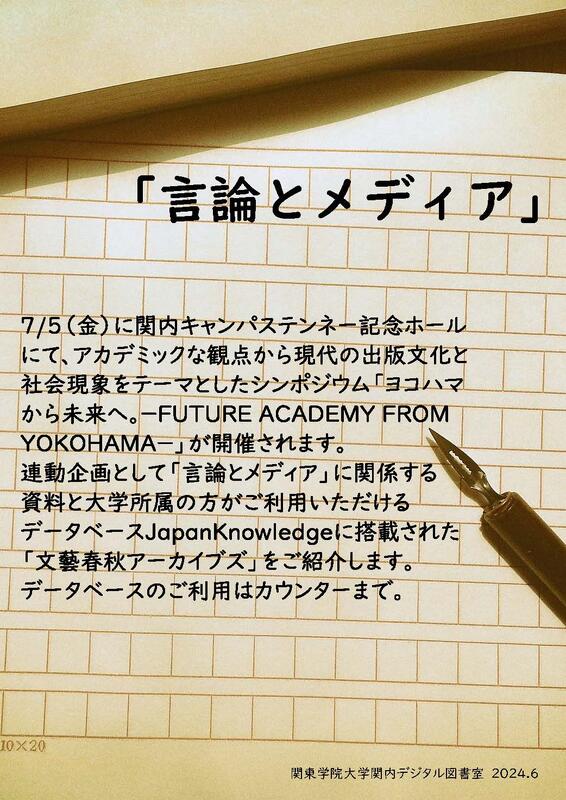 「言論とメディア」
7/5（金）に関内キャンパステンネー記念ホール
にて、アカデミックな観点から現代の出版文化と
社会現象をテーマとしたシンポジウム「ヨコハマ
から未来へ。－FUTURE ACADEMY FROM
YOKOHAMA－」が開催されます。
連動企画として「言論とメディア」に関係する
資料と大学所属の方がご利用いただける
データベースJapanKnowledgeに搭載された
「文藝春秋アーカイブズ」をご紹介します。
データベースのご利用はカウンターまで。
10×20
関東学院大学関内デジタル図書室 2024.6